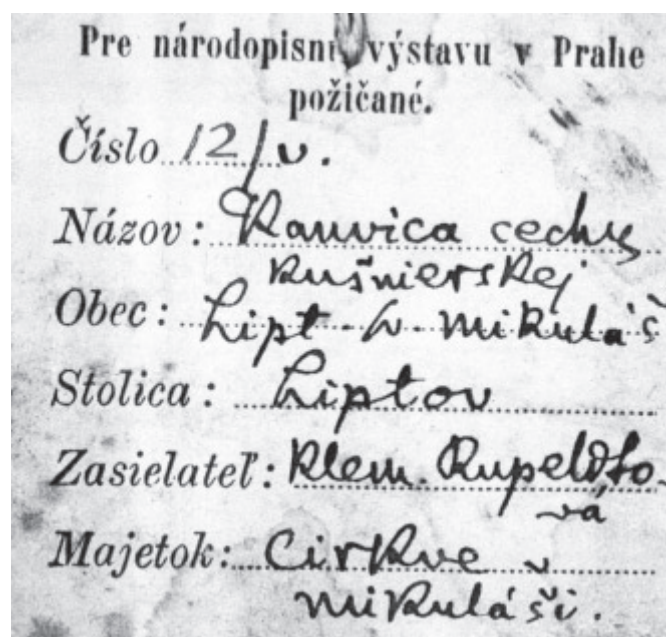 Pre národopisnú výstavu v Prahe
požičané.
Číslo 12/v.
Názov: Kanvica cechu
kušnierskej
Obec: Lipt. sv. Mikuláš
Stolica: Liptov
Zasielateľ: Klem. Rupeldto-
vá
Majetok: Cirkve v
Mikuláši.